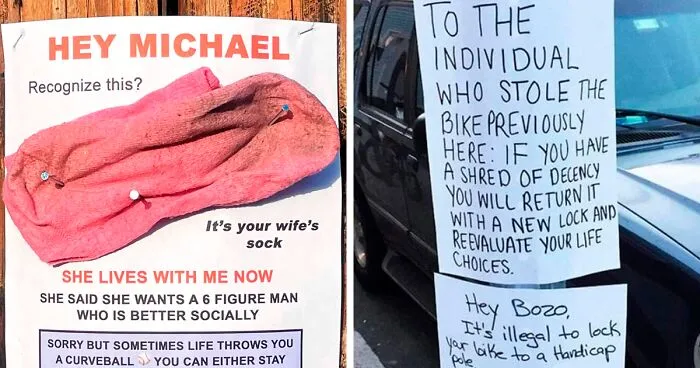 HEY MICHAEL
Recognize this?
It's your wife's
sock
SHE LIVES WITH ME NOW
SHE SAID SHE WANTS A 6 FIGURE MAN
WHO IS BETTER SOCIALLY
SORRY BUT SOMETIMES LIFE THROWS YOU
A CURVEBALL ⚾ YOU CAN EITHER STAY
TO THE
INDIVIDUAL
WHO STOLE THE
BIKE PREVIOUSLY
HERE: IF YOU HAVE
A SHRED OF DECENCY
YOU WILL RETURN IT
WITH A NEW LOCK AND
REEVALUATE YOUR LIFE
CHOICES.
Hey Bozo,
It's illegal to lock
your bike to a Handicap
pole